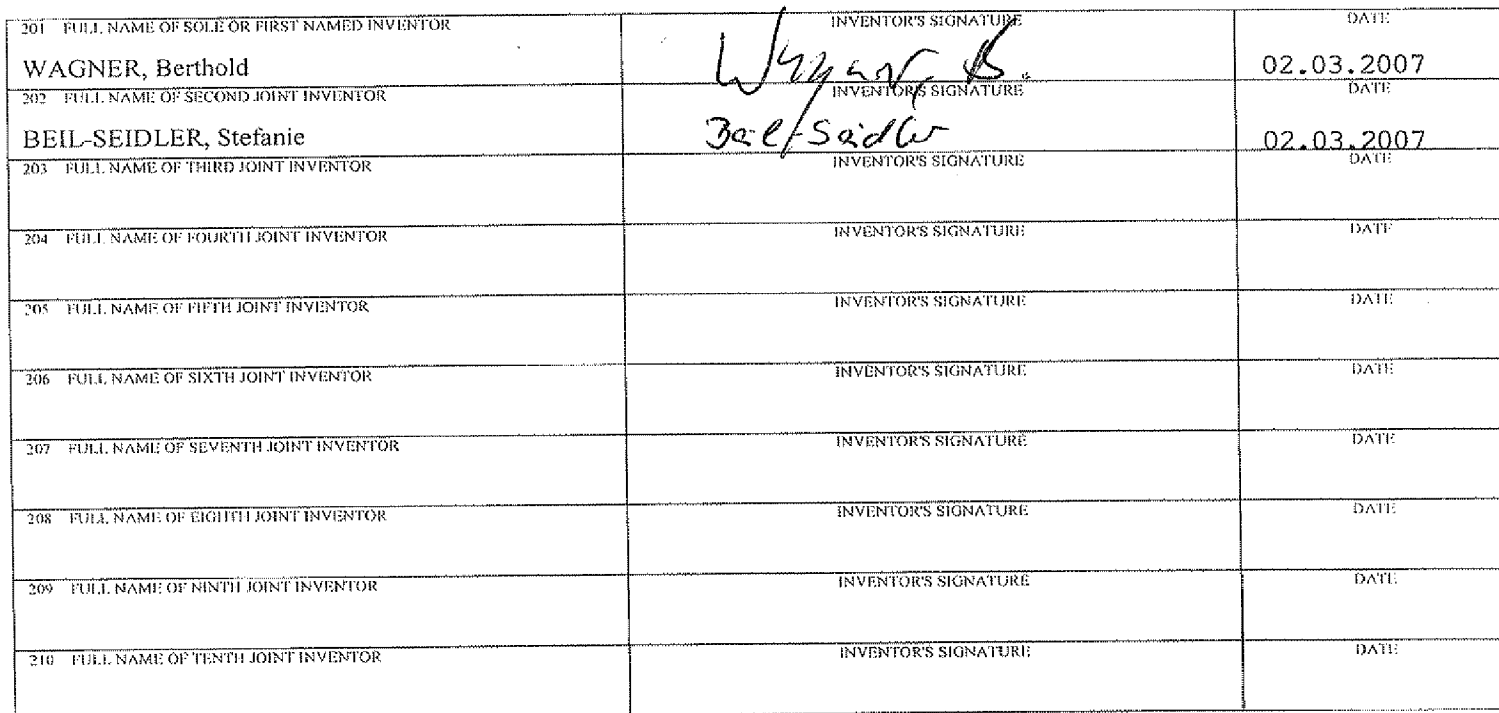 201 FULL NAME OF SOLE OR FIRST NAMED INVENTOR INVENTOR'S SIGNATURE DATE
WAGNER, Berthold 02.03.2007
202 FULL NAME OF SECOND JOINT INVENTOR INVENTOR'S SIGNATURE DATE
BEIL-SEIDLER, Stefanie Beil-Seidler 02.03.2007
203 FULL NAME OF THIRD JOINT INVENTOR INVENTOR'S SIGNATURE DATE
204 FULL NAME OF FOURTH JOINT INVENTOR INVENTOR'S SIGNATURE DATE
205 FULL NAME OF FIFTH JOINT INVENTOR INVENTOR'S SIGNATURE DATE
206 FULL NAME OF SIXTH JOINT INVENTOR INVENTOR'S SIGNATURE DATE
207 FULL NAME OF SEVENTH JOINT INVENTOR INVENTOR'S SIGNATURE DATE
208 FULL NAME OF EIGHTH JOINT INVENTOR INVENTOR'S SIGNATURE DATE
209 FULL NAME OF NINTH JOINT INVENTOR INVENTOR'S SIGNATURE DATE
210 FULL NAME OF TENTH JOINT INVENTOR INVENTOR'S SIGNATURE DATE